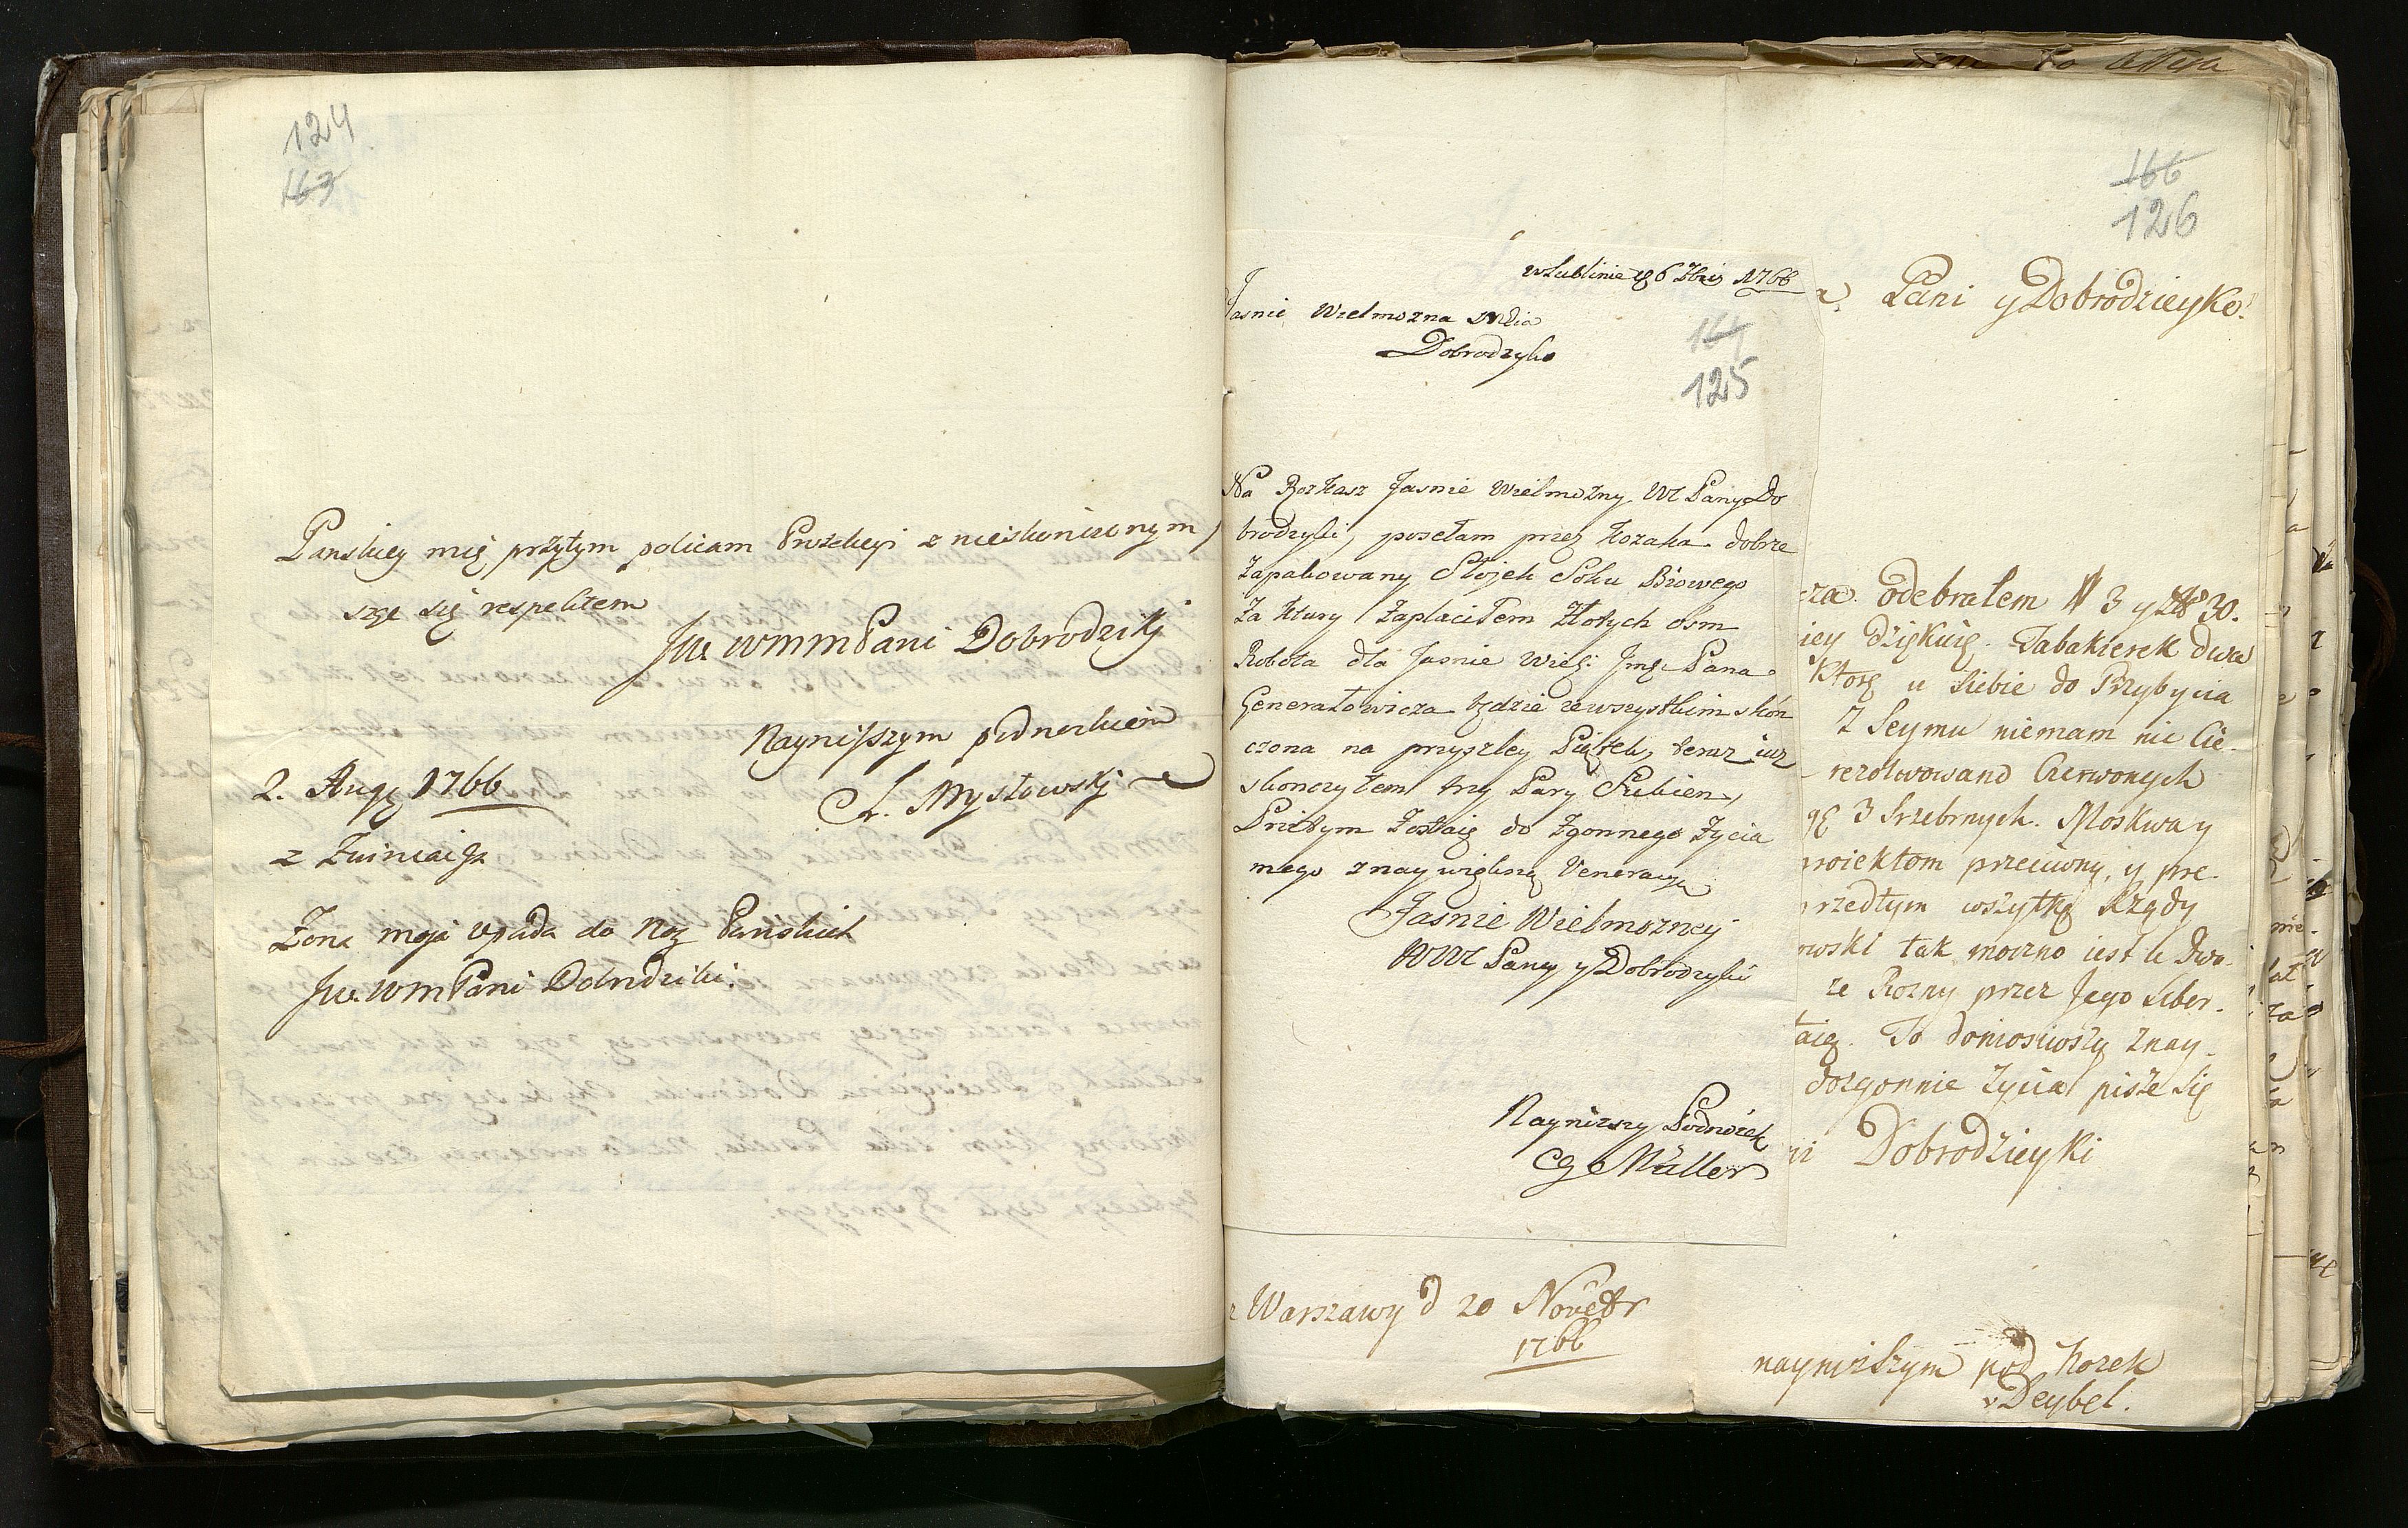 124
163
Panskiey mię przytym policam Protekcyi z nieskonczonym
szę się respektem
Jw. WMMPani Dobrodziki
Nayniszszym podnozkiem
L. Mysłowskj
2. Aug 1766
Zona moja upada do Nog Panskich
Jw. WMPani Dobrodziki.
w Lublinie 6 7bris 1766
Jasnie Wielmozna
Dobrodzyko
164
125
Na Rozkasz Jasnie Wielmozny WM Pany Do
brodzyki, posełam przez kozaka dobrze
Zapakowany Słojek Soku
Za ktury Zaplaciłem Złotych osm
Robota dla Jasnie Wiel: Jmę Pana
Generałowicza będzie ze wszystkim skon
czona na przyszley Piątek, teraz juz
skonczyłem trzy Pary Sukien,
Przitym Zostaię do Zgonnego Zycia
mego z naywiększą Veneracyą
Jasnie Wielmozney
WM Pany y Dobrodzyki
Naynizszy Podnozek
CG Müller
166
126
Pani y Dobrodzieyko!
odebrałem N 3 y N 30.
iey dziękuię. Tabakierek dwa
Ktorę u siebie do Przybycia
Z Seymu niemam nic Cie-
rezolwowano Czerwonych
3 Srzebrnych. Moskwa y
roiektom przeciwny, y pre-
rzedtym wszytkę Rządy
wski tak moczno iest u dwo-
ze Rozny przez Jego Liber-
taię. To doniosiwszy znay-
dozgonnie życia pisze się
ni Dobrodzieyki
z Warszawy d 20 Novebr
1766
naynizszym pod nozek
Deybel.